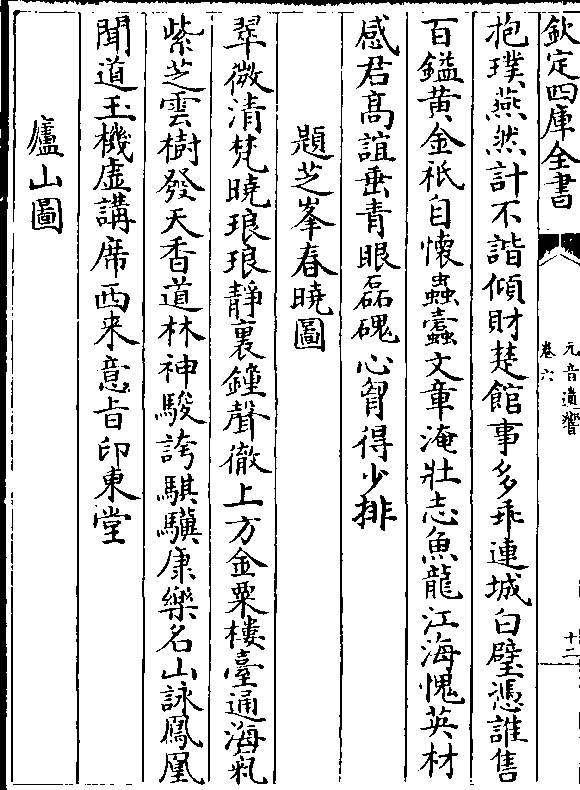 欽定四庫全書
元音遺響
卷六
十二
抱璞燕然計不諧傾財楚館事多乖連城白璧憑誰售
百鎰黄金祇自懷蟲蠧文章淹壯志魚龍江海愧英材
感君髙誼垂青眼磊磈心胷得少排
題芝峯春曉圖
翠微清梵曉琅琅靜裏鐘聲徹上方金粟樓臺通海氣
紫芝雲樹發天香道林神駿誇騏驥康樂名山詠鳳凰
聞道玉機虚講席西来意㫖印東堂
廬山圖